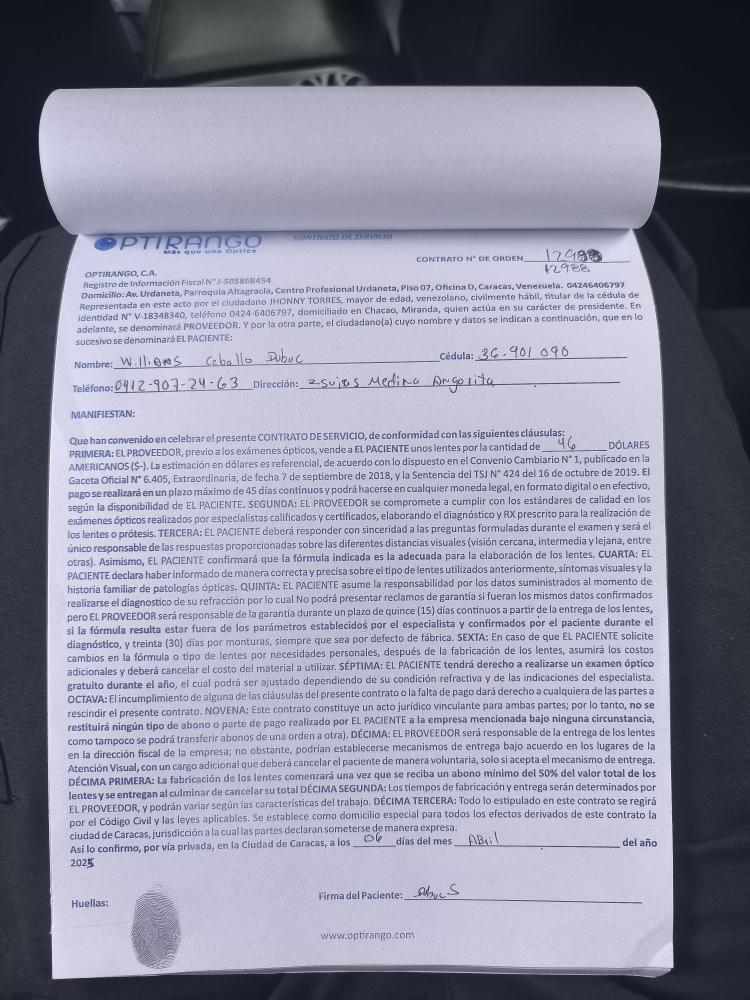 OPTIRANGO
Más que una Óptica
CONTRATO DE SERVICIO
CONTRATO N° DE ORDEN 12988
12988
OPTIRANGO, C.A.
Registro de Información Fiscal N° J-505868454
Domicilio: Av. Urdaneta, Parroquia Altagracia, Centro Profesional Urdaneta, Piso 07, Oficina D, Caracas, Venezuela. 04246406797
Representada en este acto por el ciudadano JHONNY TORRES, mayor de edad, venezolano, civilmente hábil, titular de la cédula de
identidad N° V-18348340, teléfono 0424-6406797, domiciliado en Chacao, Miranda, quien actúa en su carácter de presidente. En
adelante, se denominará PROVEEDOR. Y por la otra parte, el ciudadano(a) cuyo nombre y datos se indican a continuación, que en lo
sucesivo se denominará EL PACIENTE:
Nombre: Willians Ceballo Dubuc Cédula: 36.901 090
Teléfono: 0412-907-24-63 Dirección: Medina Angarita
MANIFIESTAN:
Que han convenido en celebrar el presente CONTRATO DE SERVICIO, de conformidad con las siguientes cláusulas:
PRIMERA: EL PROVEEDOR, previo a los exámenes ópticos, vende a EL PACIENTE unos lentes por la cantidad de 46 DÓLARES
AMERICANOS ($-). La estimación en dólares es referencial, de acuerdo con lo dispuesto en el Convenio Cambiario N° 1, publicado en la
Gaceta Oficial N° 6.405, Extraordinaria, de fecha 7 de septiembre de 2018, y la Sentencia del TSJ N° 424 del 16 de octubre de 2019. El
pago se realizará en un plazo máximo de 45 días continuos y podrá hacerse en cualquier moneda legal, en formato digital o en efectivo,
según la disponibilidad de EL PACIENTE. SEGUNDA: EL PROVEEDOR se compromete a cumplir con los estándares de calidad en los
exámenes ópticos realizados por especialistas calificados y certificados, elaborando el diagnóstico y RX prescrito para la realización de
los lentes o prótesis. TERCERA: EL PACIENTE deberá responder con sinceridad a las preguntas formuladas durante el examen y será el
único responsable de las respuestas proporcionadas sobre las diferentes distancias visuales (visión cercana, intermedia y lejana, entre
otras). Asimismo, EL PACIENTE confirmará que la fórmula indicada es la adecuada para la elaboración de los lentes. CUARTA: EL
PACIENTE declara haber informado de manera correcta y precisa sobre el tipo de lentes utilizados anteriormente, síntomas visuales y la
historia familiar de patologías ópticas. QUINTA: EL PACIENTE asume la responsabilidad por los datos suministrados al momento de
realizarse el diagnostico de su refracción por lo cual No podrá presentar reclamos de garantía si fueran los mismos datos confirmados
pero EL PROVEEDOR será responsable de la garantía durante un plazo de quince (15) días continuos a partir de la entrega de los lentes,
si la fórmula resulta estar fuera de los parámetros establecidos por el especialista y confirmados por el paciente durante el
diagnóstico, y treinta (30) días por monturas, siempre que sea por defecto de fábrica. SEXTA: En caso de que EL PACIENTE solicite
cambios en la fórmula o tipo de lentes por necesidades personales, después de la fabricación de los lentes, asumirá los costos
adicionales y deberá cancelar el costo del material a utilizar. SÉPTIMA: EL PACIENTE tendrá derecho a realizarse un examen óptico
gratuito durante el año, el cual podrá ser ajustado dependiendo de su condición refractiva y de las indicaciones del especialista.
OCTAVA: El incumplimiento de alguna de las cláusulas del presente contrato o la falta de pago dará derecho a cualquiera de las partes a
rescindir el presente contrato. NOVENA: Este contrato constituye un acto jurídico vinculante para ambas partes; por lo tanto, no se
restituirá ningún tipo de abono o parte de pago realizado por EL PACIENTE a la empresa mencionada bajo ninguna circunstancia,
como tampoco se podrá transferir abonos de una orden a otra). DÉCIMA: EL PROVEEDOR será responsable de la entrega de los lentes
en la dirección fiscal de la empresa; no obstante, podrían establecerse mecanismos de entrega bajo acuerdo en los lugares de la
Atención Visual, con un cargo adicional que deberá cancelar el paciente de manera voluntaria, solo si acepta el mecanismo de entrega.
DÉCIMA PRIMERA: La fabricación de los lentes comenzará una vez que se reciba un abono mínimo del 50% del valor total de los
lentes y se entregan al culminar de cancelar su total DÉCIMA SEGUNDA: Los tiempos de fabricación y entrega serán determinados por
EL PROVEEDOR, y podrán variar según las características del trabajo. DÉCIMA TERCERA: Todo lo estipulado en este contrato se regirá
por el Código Civil y las leyes aplicables. Se establece como domicilio especial para todos los efectos derivados de este contrato la
ciudad de Caracas, jurisdicción a la cual las partes declaran someterse de manera expresa.
Así lo confirmo, por vía privada, en la Ciudad de Caracas, a los 06 días del mes Abril del año
2025
Huellas:
Firma del Paciente: Dubuc S
www.optirango.com